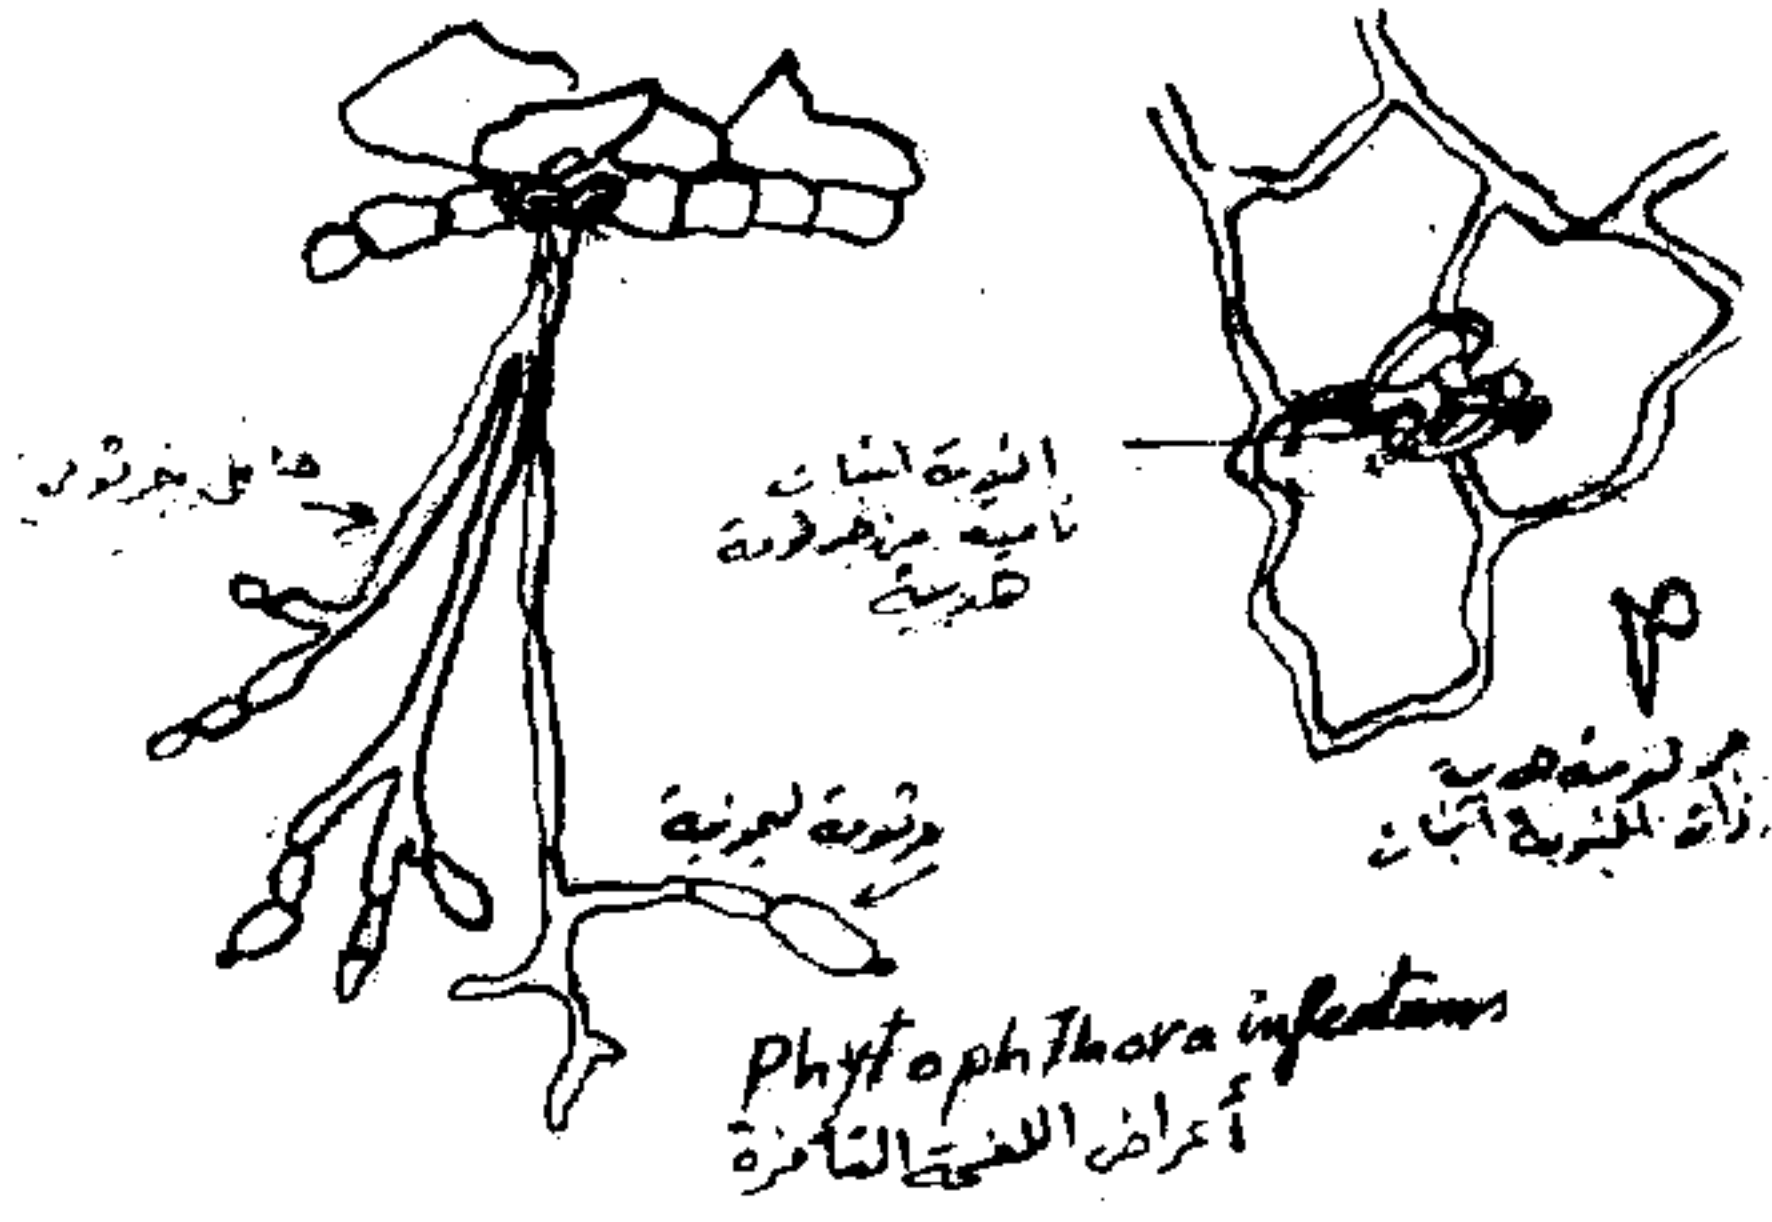 حامل جرثومي
انبوبة انبات
نامية من جرثومة
هدبية
جرثومة هدبية
ذات انبوبة انبات
Phytophthora infestans
أعراض اللفحة المتأخرة